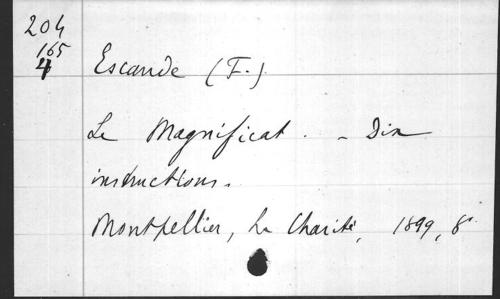 204
165
4
Escande (F.)
Le Magnificat. - Dix
instructions.
Montpellier, la Charité, 1899, 8°